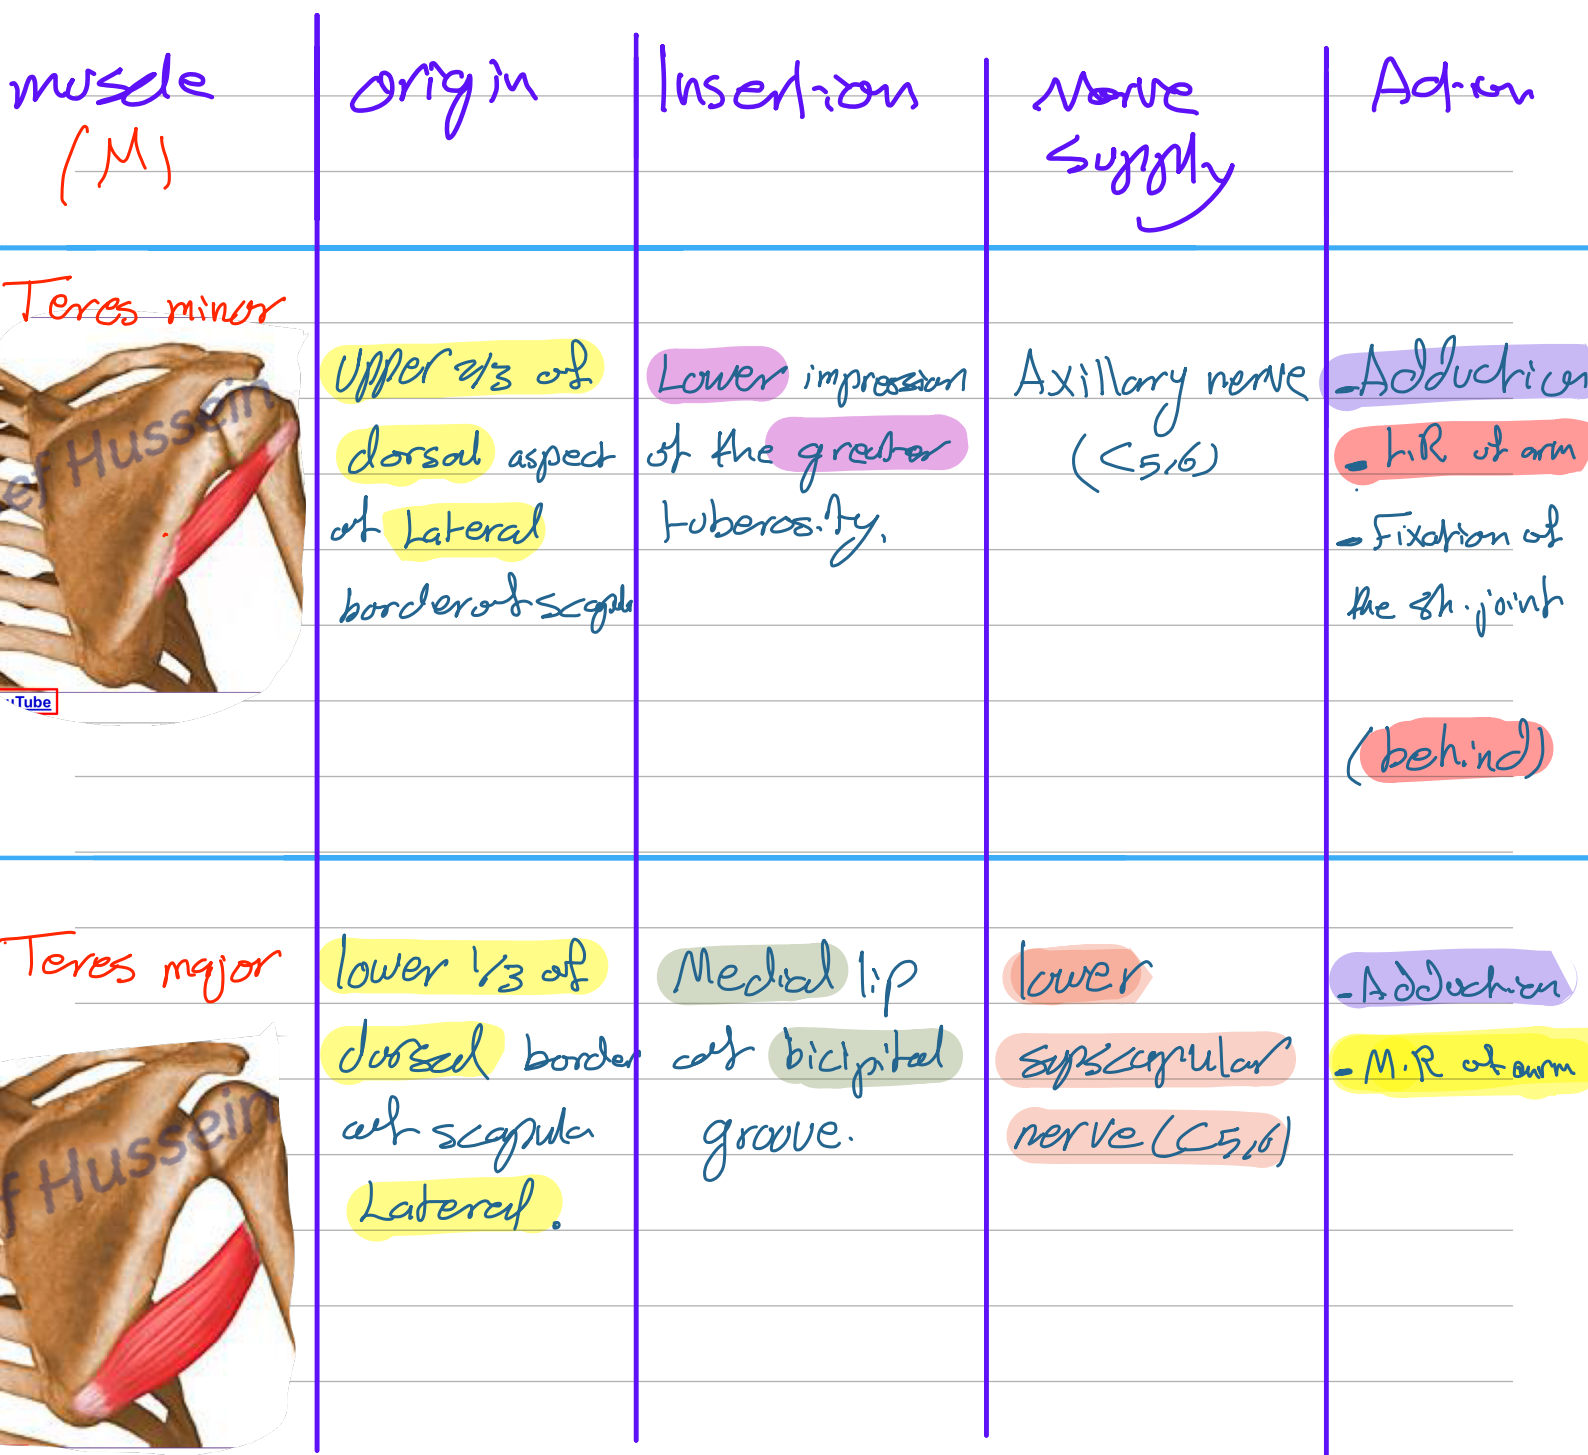 muscle
(M)
origin
Insertion
Nerve
Supply
Action
Teres minor
ef Hussein
uTube
Upper 2/3 of
dorsal aspect
of Lateral
border of scapula
Lower impression
of the greater
tuberosity.
Axillary nerve
(C5,6)
- Adduction
- L.R of arm
- Fixation of
the sh. joint
(behind)
Teres major
f Hussein
lower 1/3 of
dorsal border
of scapula
Lateral.
Medial lip
of bicipital
groove.
lower
supscapular
nerve (C5,6)
- Adduction
- M.R of arm